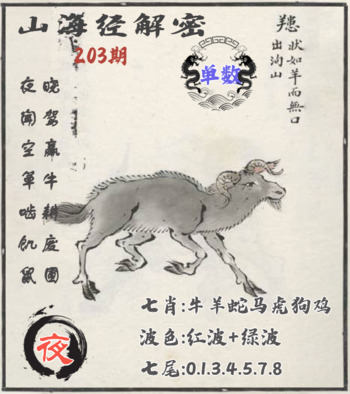 山海经解密
203期
单数
䍺状如羊而無口
出洵山
晚驾羸牛耕废圃
夜闻空箪啮饥鼠
七肖:牛羊蛇马虎狗鸡
波色:红波+绿波
七尾:0.1.3.4.5.7.8
夜